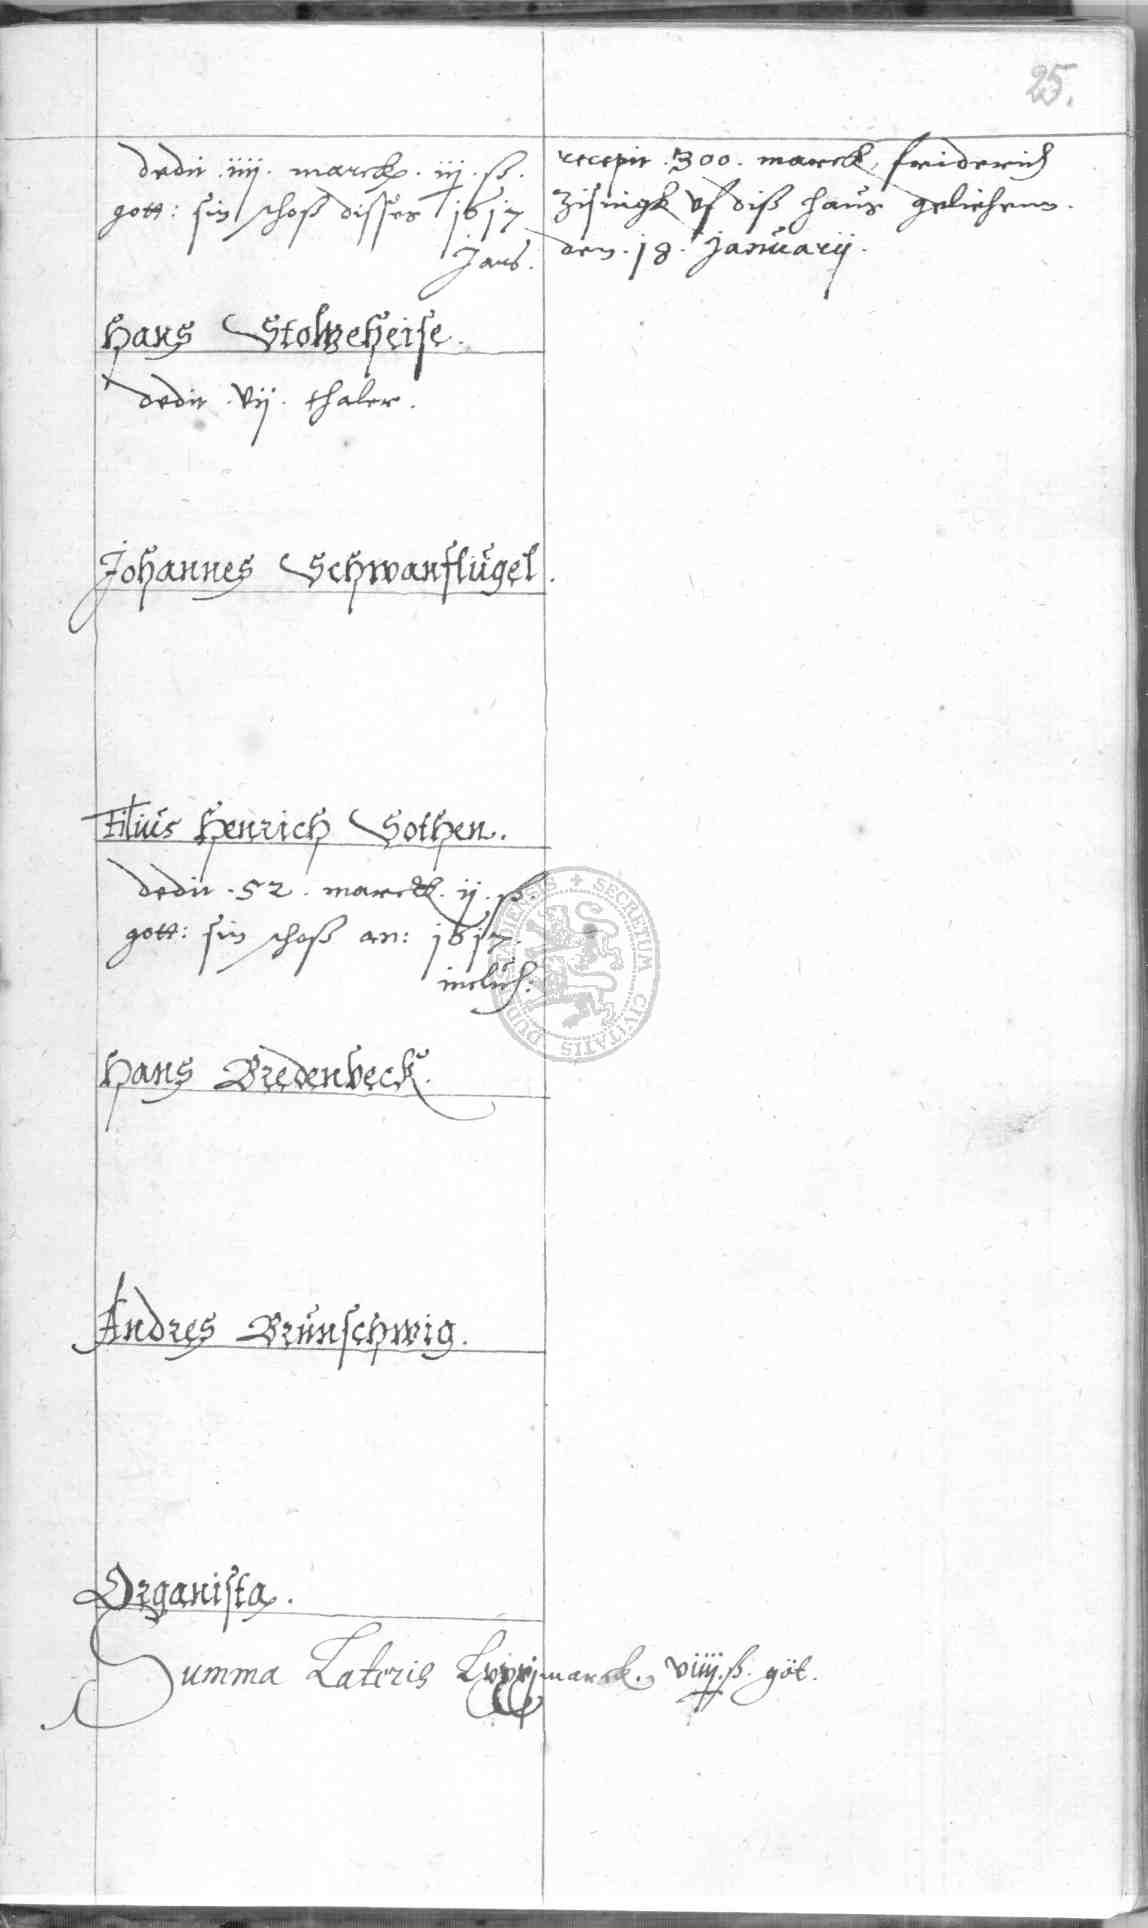 25.
dedit .iiij. marck. iij. ß.
gott: sin schoß disses 1617
Jars.
recepit .300. marck, friderich
Zisingk vf diß haus geliehenn.
den .18. Januarij.
Hans Stolzeheise.
dedit .vij. thaler.
Johannes Schwanflügel.
Filius Henrich Sothen.
dedit .52. marck. ij. ß.
gott: sin schoß an: 1617.
inclus:
Hans Bredenbeck.
Andres Brunschwig.
Organista.
Summa Lateris marck. viiij. ß. göt.
SECRETUM CIVITATIS DUDERSTADIENSIS